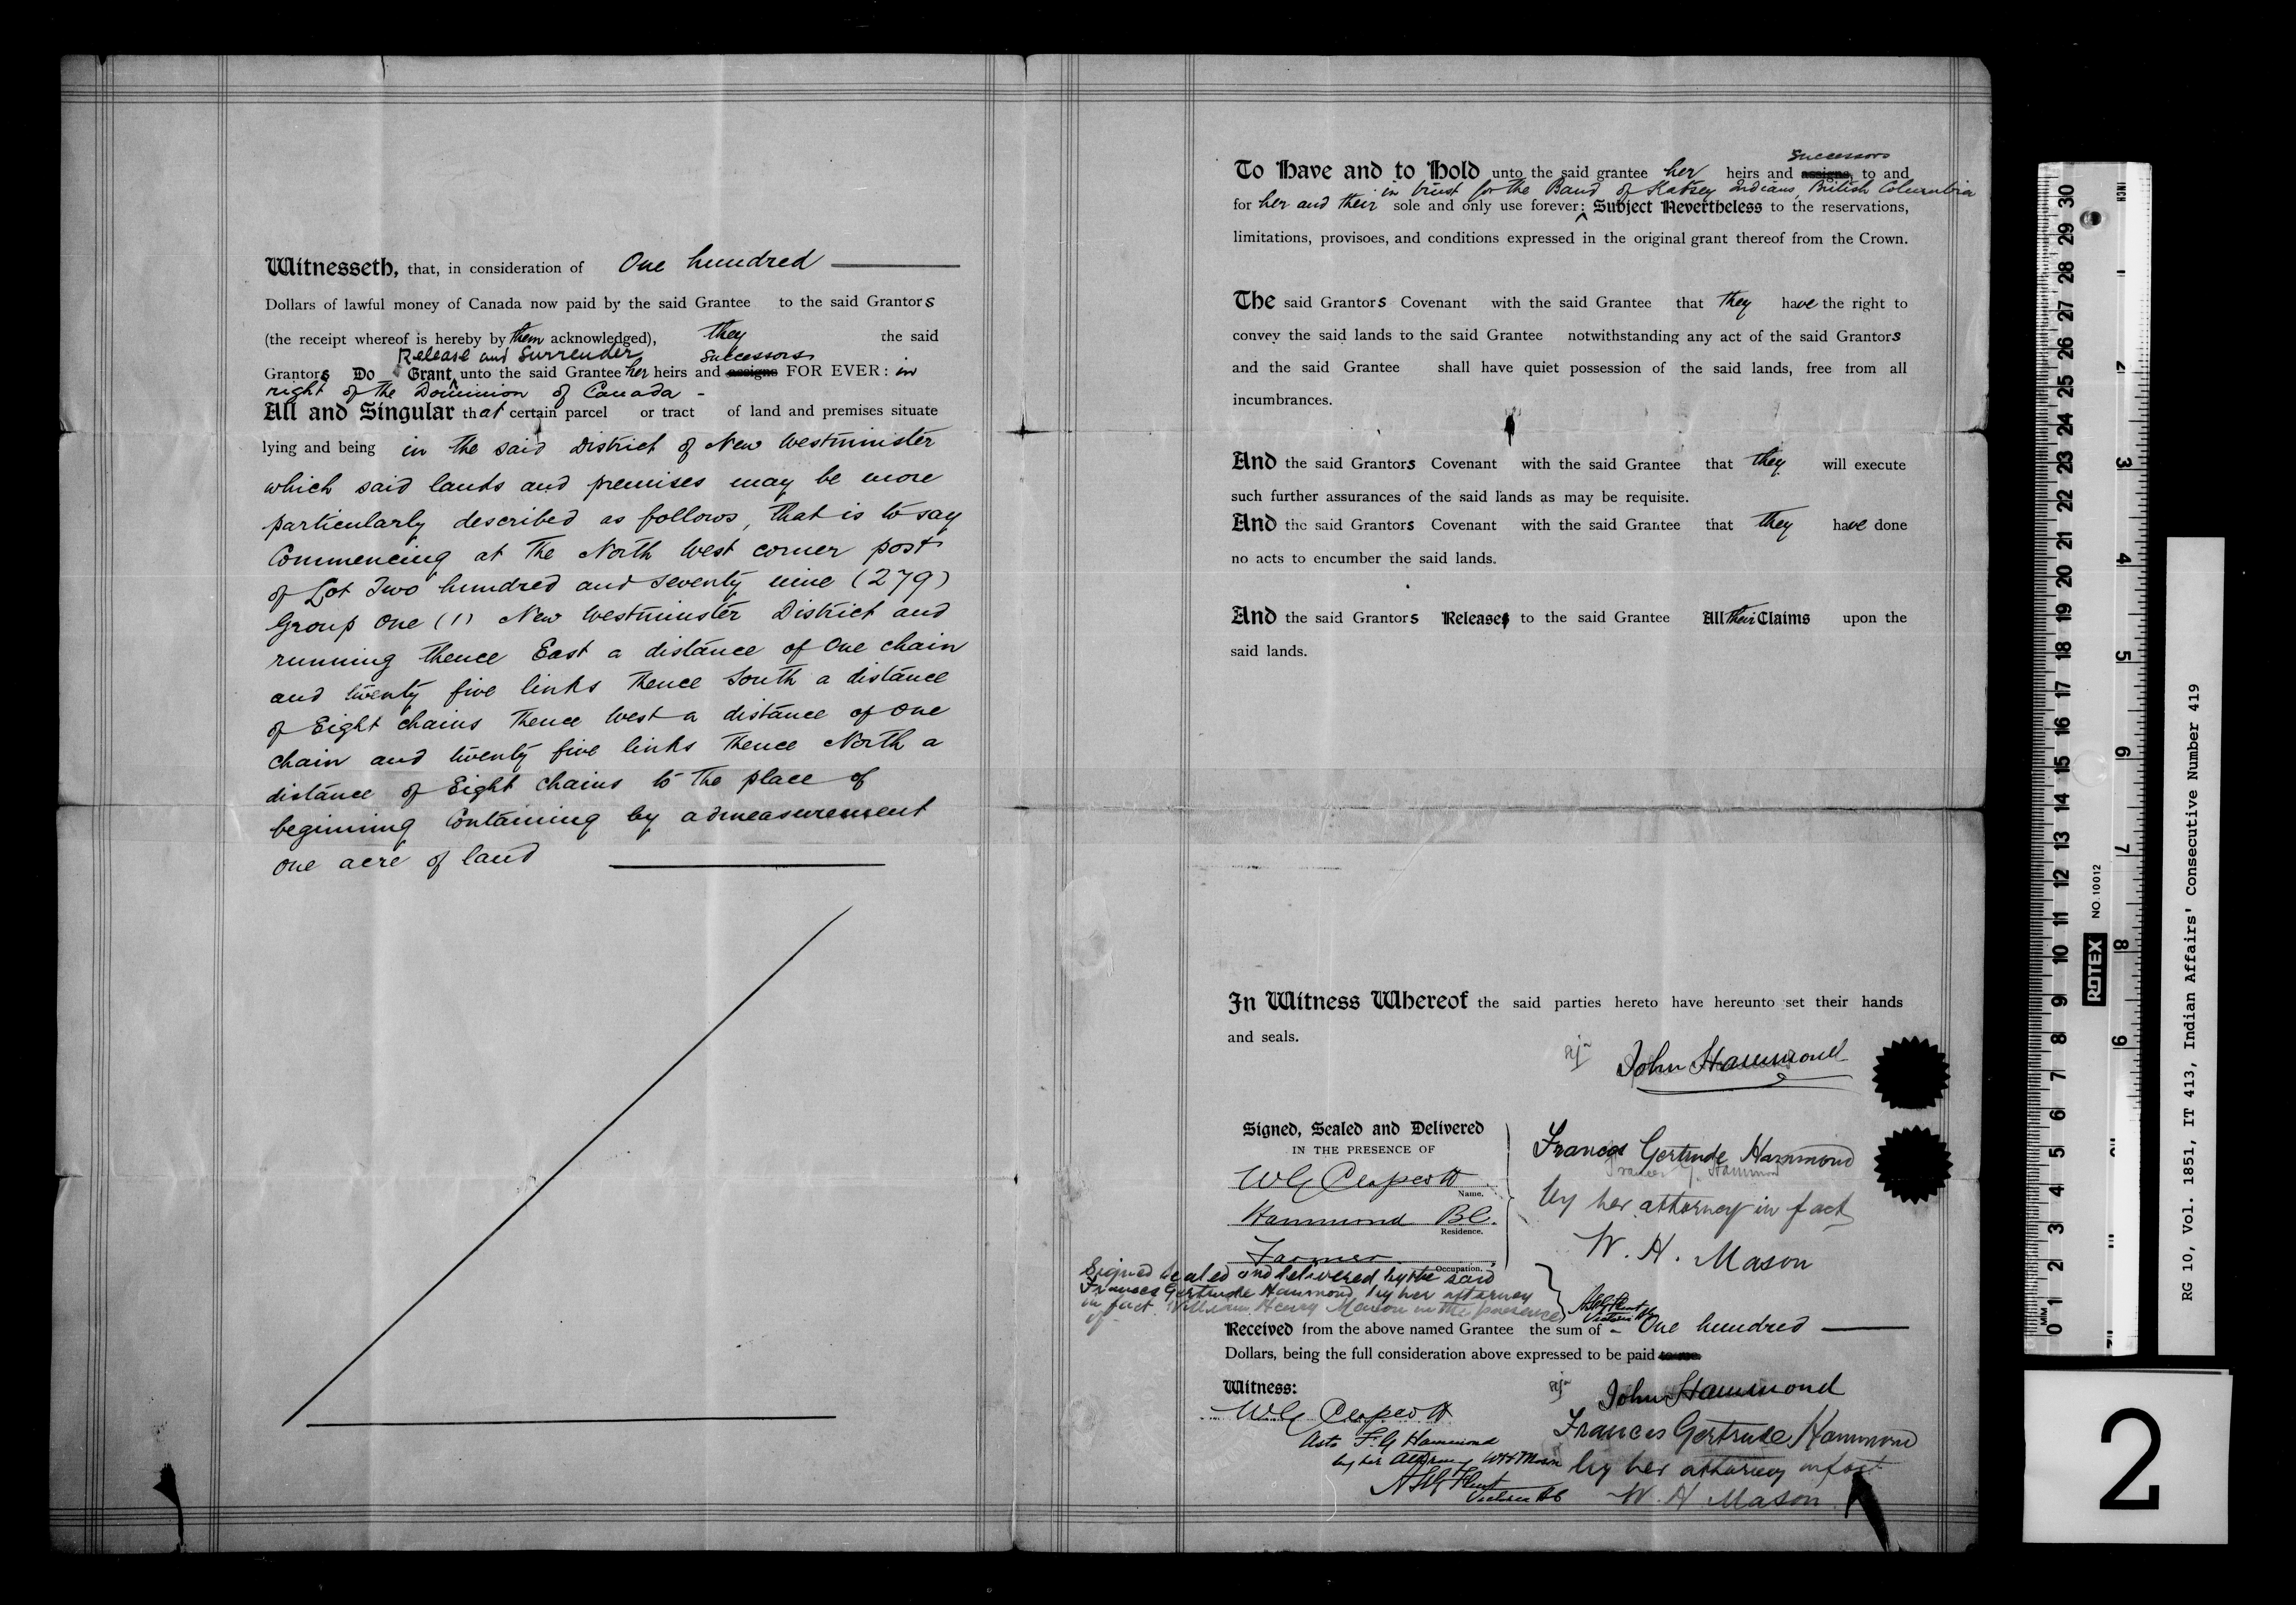 Witnesseth, that, in consideration of One hundred
Dollars of lawful money of Canada now paid by the said Grantee to the said Grantors
(the receipt whereof is hereby by them acknowledged), they the said
Release and Surrender successors
Grantors Do Grant unto the said Grantee her heirs and assigns FOR EVER: in
right of the Dominion of Canada -
All and Singular that certain parcel or tract of land and premises situate
lying and being in the said District of New Westminster
which said lands and premises may be more
particularly described as follows, that is to say
Commencing at the North West corner post
of Lot Two hundred and seventy nine (279)
Group One (1) New Westminster District and
running thence East a distance of One chain
and twenty five links thence South a distance
of Eight chains thence West a distance of One
chain and twenty five links thence North a
distance of Eight chains to the place of
beginning Containing by admeasurement
one acre of land
successors
To Have and to Hold unto the said grantee her heirs and assigns, to and
in trust for the Band of Katsey Indians, British Columbia
for her and their sole and only use forever: Subject Nevertheless to the reservations,
limitations, provisoes, and conditions expressed in the original grant thereof from the Crown.
The said Grantors Covenant with the said Grantee that they have the right to
convey the said lands to the said Grantee notwithstanding any act of the said Grantors
and the said Grantee shall have quiet possession of the said lands, free from all
incumbrances.
And the said Grantors Covenant with the said Grantee that they will execute
such further assurances of the said lands as may be requisite.
And the said Grantors Covenant with the said Grantee that they have done
no acts to encumber the said lands.
And the said Grantors Releases to the said Grantee All their Claims upon the
said lands.
In Witness Whereof the said parties hereto have hereunto set their hands
and seals.
John Hammond
Signed, Sealed and Delivered
IN THE PRESENCE OF
Name.
Hammond BC.
Residence.
Farmer
Occupation.
Frances Gertrude Hammond
by her attorney in fact
W. H. Mason
Signed Sealed and delivered by the said
Frances Gertrude Hammond by her attorney
in fact William Henry Mason in the presence
of
Received from the above named Grantee the sum of - One hundred
Dollars, being the full consideration above expressed to be paid to me.
Witness:
John Hammond
Frances Gertrude Hammond
by her attorney in fact
W. H Mason
as to F. G Hammond
by her Attorney WH Mason
Victoria BC
RG 10, Vol. 1851, IT 413, Indian Affairs' Consecutive Number 419
ROTEX
NO. 10012
INCH
MM
2